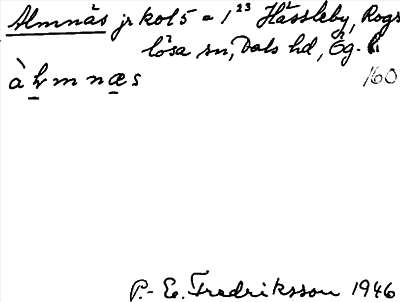 Almnäs jrkol 5 = 1 23 Hässleby, Rogs
lösa sn, Dals hd, Ög.
160
P.-E. Fredriksson 1946